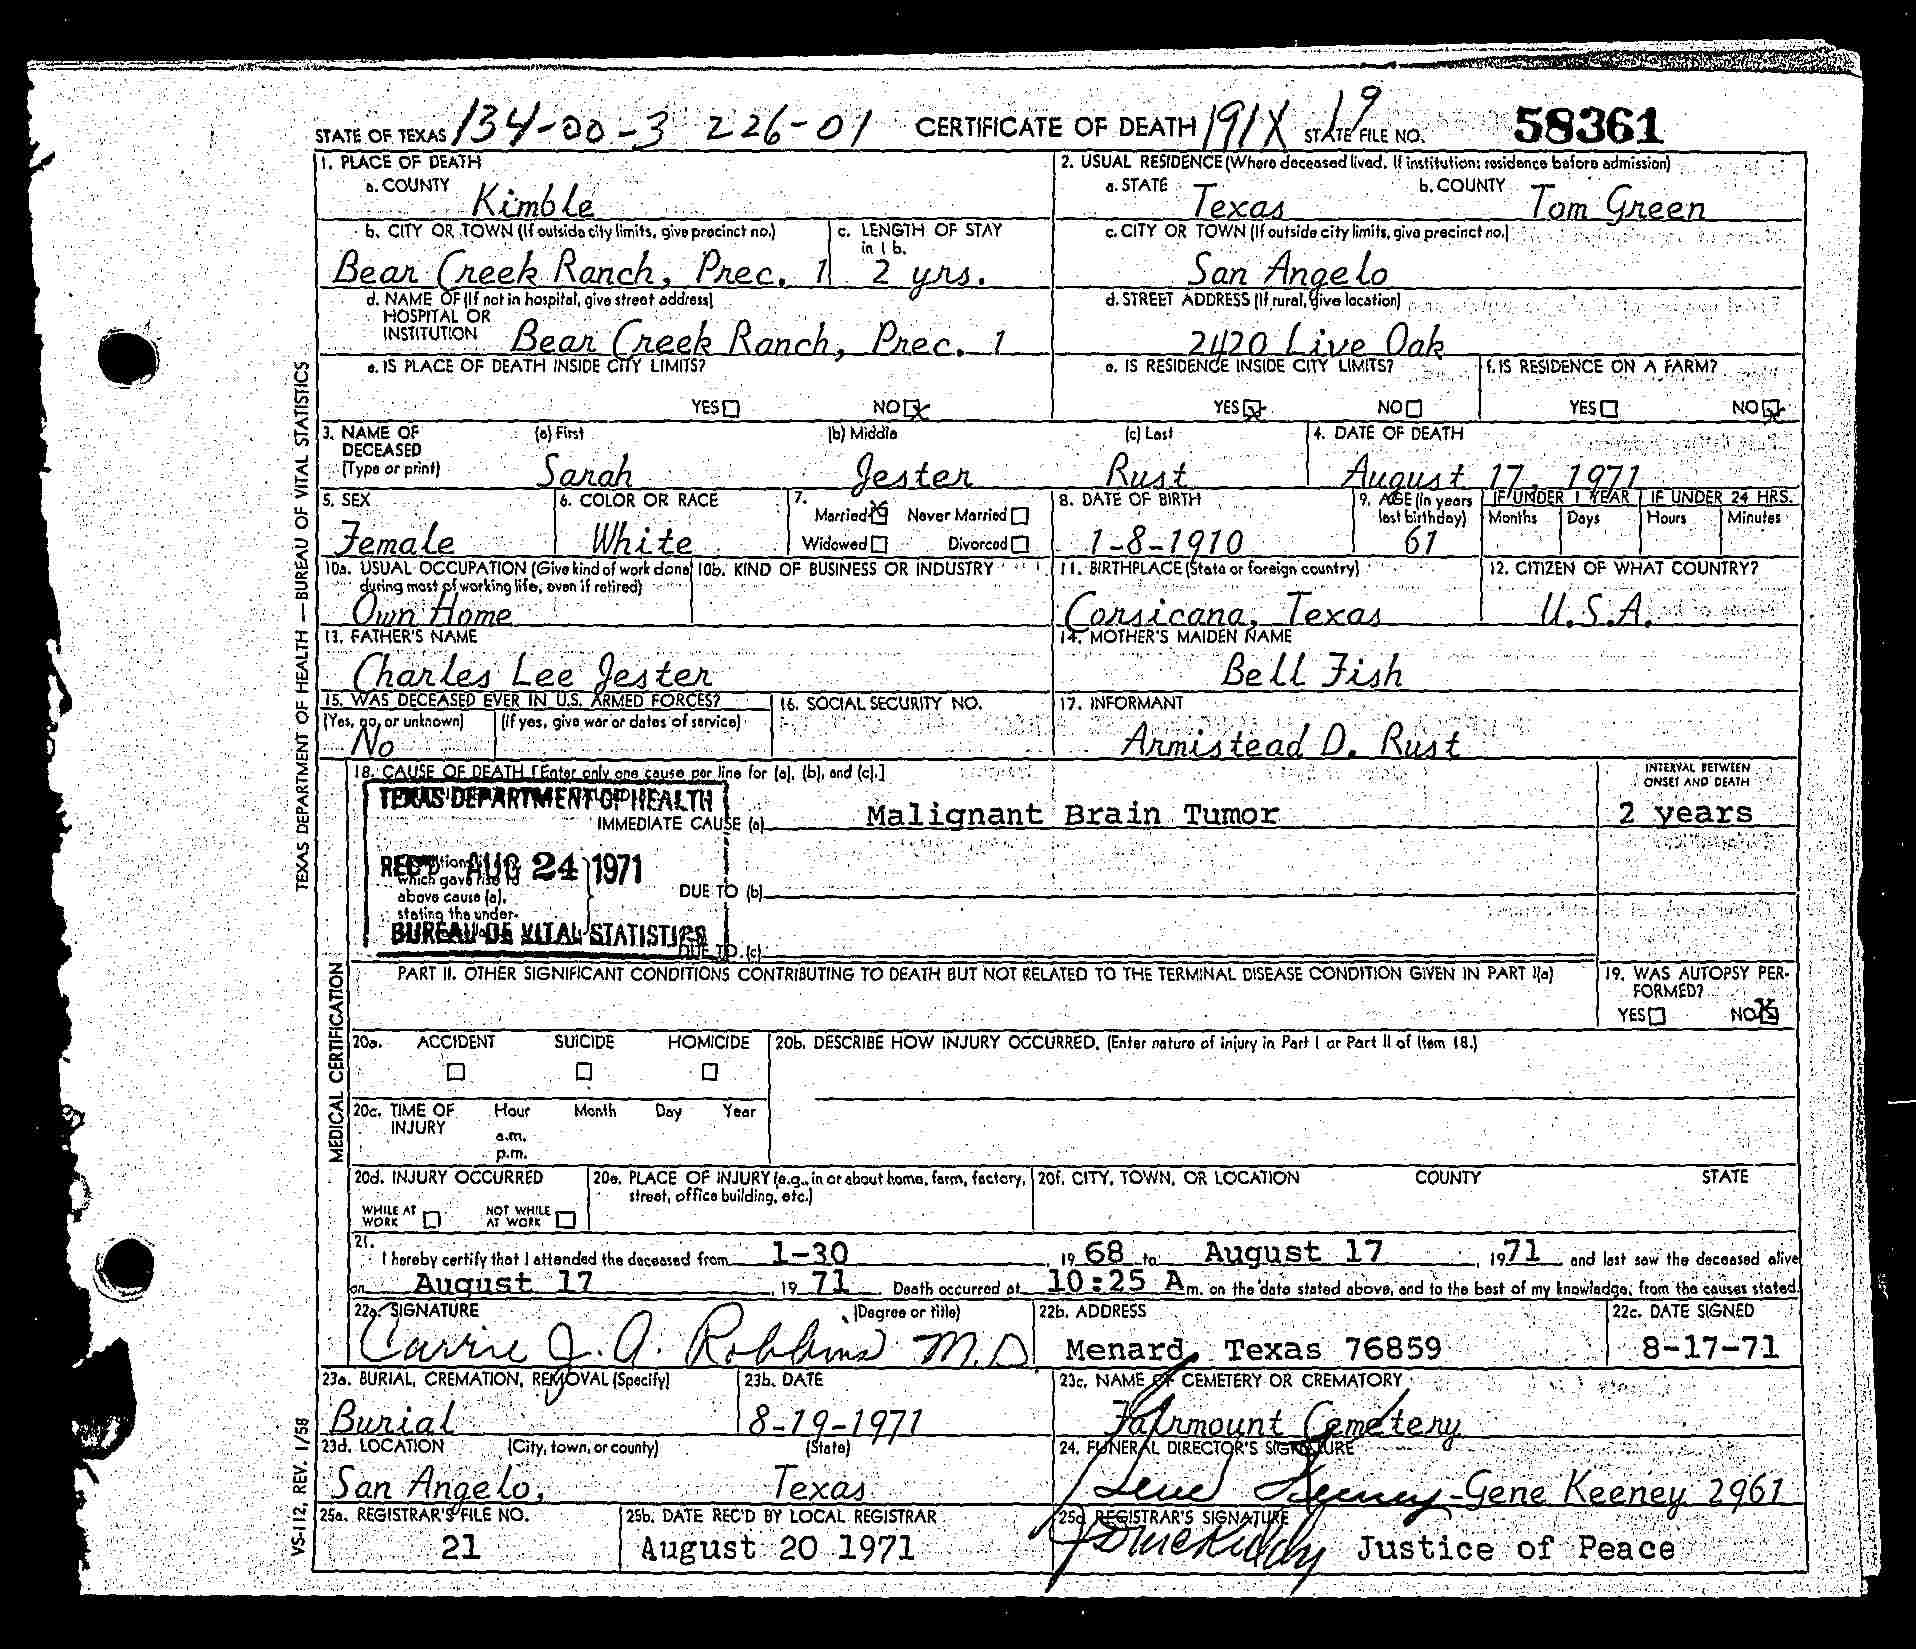 STATE OF TEXAS 134-00-3 226-01 CERTIFICATE OF DEATH 191X 19 STATE FILE NO. 58361
1. PLACE OF DEATH
a. COUNTY Kimble
2. USUAL RESIDENCE (Where deceased lived. If institution: residence before admission)
a. STATE Texas b. COUNTY Tom Green
b. CITY OR TOWN (If outside city limits, give precinct no.) Bear Creek Ranch, Prec. 1
c. LENGTH OF STAY in 1 b. 2 yrs.
c. CITY OR TOWN (If outside city limits, give precinct no.) San Angelo
d. NAME OF (If not in hospital, give street address) HOSPITAL OR INSTITUTION Bear Creek Ranch, Prec. 1
d. STREET ADDRESS (If rural, give location) 2420 Live Oak
e. IS PLACE OF DEATH INSIDE CITY LIMITS?
YES NO X
e. IS RESIDENCE INSIDE CITY LIMITS?
YES X NO
f. IS RESIDENCE ON A FARM?
YES NO X
3. NAME OF DECEASED (Type or print)
(a) First (b) Middle (c) Last
Sarah Jester Rust
4. DATE OF DEATH
August 17, 1971
5. SEX
Female
6. COLOR OR RACE
White
7. Married X Never Married
Widowed Divorced
8. DATE OF BIRTH
1-8-1910
9. AGE (In years last birthday)
61
IF UNDER 1 YEAR IF UNDER 24 HRS.
Months Days Hours Minutes
10a. USUAL OCCUPATION (Give kind of work done during most of working life, even if retired)
Own Home
10b. KIND OF BUSINESS OR INDUSTRY
11. BIRTHPLACE (State or foreign country)
Corsicana, Texas
12. CITIZEN OF WHAT COUNTRY?
U.S.A.
13. FATHER'S NAME
Charles Lee Jester
14. MOTHER'S MAIDEN NAME
Bell Fish
15. WAS DECEASED EVER IN U.S. ARMED FORCES?
(Yes, no, or unknown) (If yes, give war or dates of service)
No
16. SOCIAL SECURITY NO.
17. INFORMANT
Armistead D. Rust
18. CAUSE OF DEATH [Enter only one cause per line for (a), (b), and (c).]
INTERVAL BETWEEN ONSET AND DEATH
TEXAS DEPARTMENT OF HEALTH
IMMEDIATE CAUSE (a) Malignant Brain Tumor 2 years
REC'D AUG 24 1971
which gave rise to
above cause (a),
stating the under-
DUE TO (b)
BUREAU OF VITAL STATISTICS
DUE TO (c)
PART II. OTHER SIGNIFICANT CONDITIONS CONTRIBUTING TO DEATH BUT NOT RELATED TO THE TERMINAL DISEASE CONDITION GIVEN IN PART I(a)
19. WAS AUTOPSY PERFORMED?
YES NO X
20a. ACCIDENT SUICIDE HOMICIDE
20b. DESCRIBE HOW INJURY OCCURRED. (Enter nature of injury in Part I or Part II of Item 18.)
20c. TIME OF INJURY Hour Month Day Year
a.m.
p.m.
20d. INJURY OCCURRED
WHILE AT WORK NOT WHILE AT WORK
20e. PLACE OF INJURY (e.g., in or about home, farm, factory, street, office building, etc.)
20f. CITY, TOWN, OR LOCATION COUNTY STATE
21. I hereby certify that I attended the deceased from 1-30, 1968 to August 17, 1971 and last saw the deceased alive
on August 17, 1971 Death occurred at 10:25 A m. on the date stated above, and to the best of my knowledge, from the causes stated.
22a. SIGNATURE (Degree or title)
Carrie J. A. Robbins M.D.
22b. ADDRESS
Menard, Texas 76859
22c. DATE SIGNED
8-17-71
23a. BURIAL, CREMATION, REMOVAL (Specify)
Burial
23b. DATE
8-19-1971
23c. NAME OF CEMETERY OR CREMATORY
Fairmount Cemetery
23d. LOCATION (City, town, or county) (State)
San Angelo, Texas
24. FUNERAL DIRECTOR'S SIGNATURE
Gene Keeney - Gene Keeney 2961
25a. REGISTRAR'S FILE NO.
21
25b. DATE REC'D BY LOCAL REGISTRAR
August 20 1971
25c. REGISTRAR'S SIGNATURE
Justice of Peace
TEXAS DEPARTMENT OF HEALTH — BUREAU OF VITAL STATISTICS
MEDICAL CERTIFICATION
VS-112, REV. 1/58